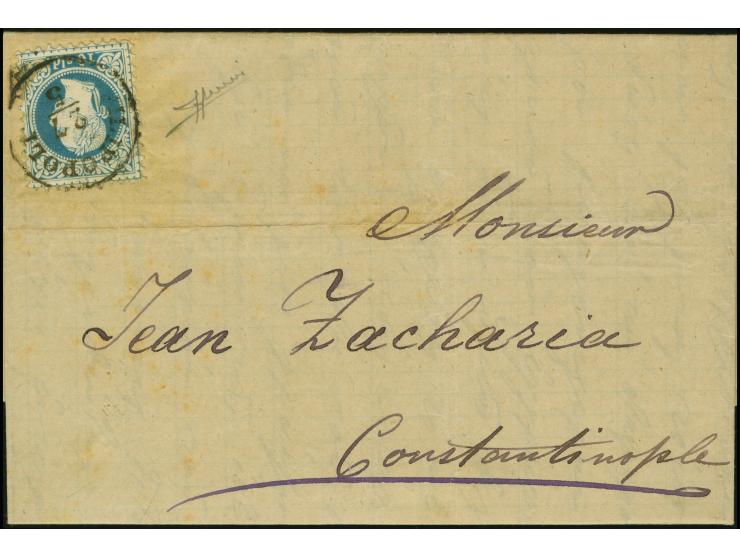 Monsieur
Jean Zacharia
Constantinople